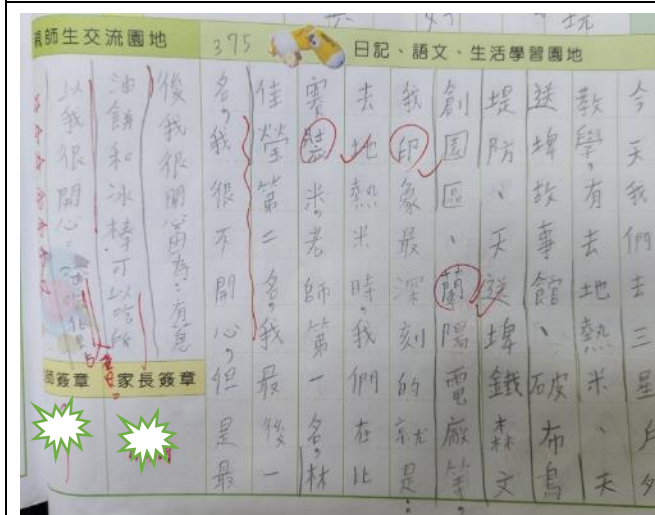 日記、語文、生活學習園地
375
師生交流園地
今天我們去三星戶外
教學,有去地熱米、天
送埤故事館、破布烏
堤防、天送埤鐵森文
創園區、蘭陽電廠等。
我印象最深刻的就是:
去地熱米時,我們在比
賽
米,老師第一名,林
佳瑩第二名,我最後一
名,我很不開心,但是最
後我很開
有蔥
油餅和冰棒可以吃所
以我很開心。
師簽章
家長簽章